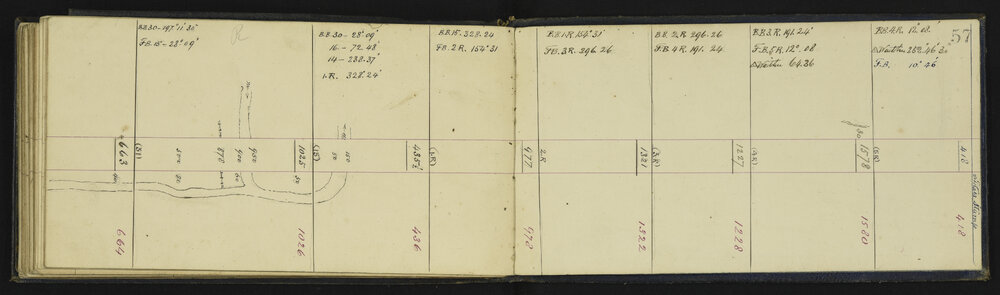 57
B.B.30-197°11'30"
F.B.15-28°09'
R
B.B.30-28°09'
16-72.48'
14-288.37'
1.R. 328°24'
B.B.15. 328.24
F.B.2.R. 154°31
B.B.1.R 154°31'
F.B.3.R. 296.26
B.B. 2.R 296.26
F.B. 4.R 191.24
B.B.3.R. 191.24'
F.B.5.R. 12°.08
64.36
B.B.4.R. 12°.08'
252°46'30"
F.B. 10°46'
4663
(31)
50
878
900
950
1025
(15)
50
100
435½
(1R)
477
2.R
1321
(3.R)
1227
(4R)
30
1578
(5R)
418
50
50
664
1026
436
478
1322
1228
1580
418